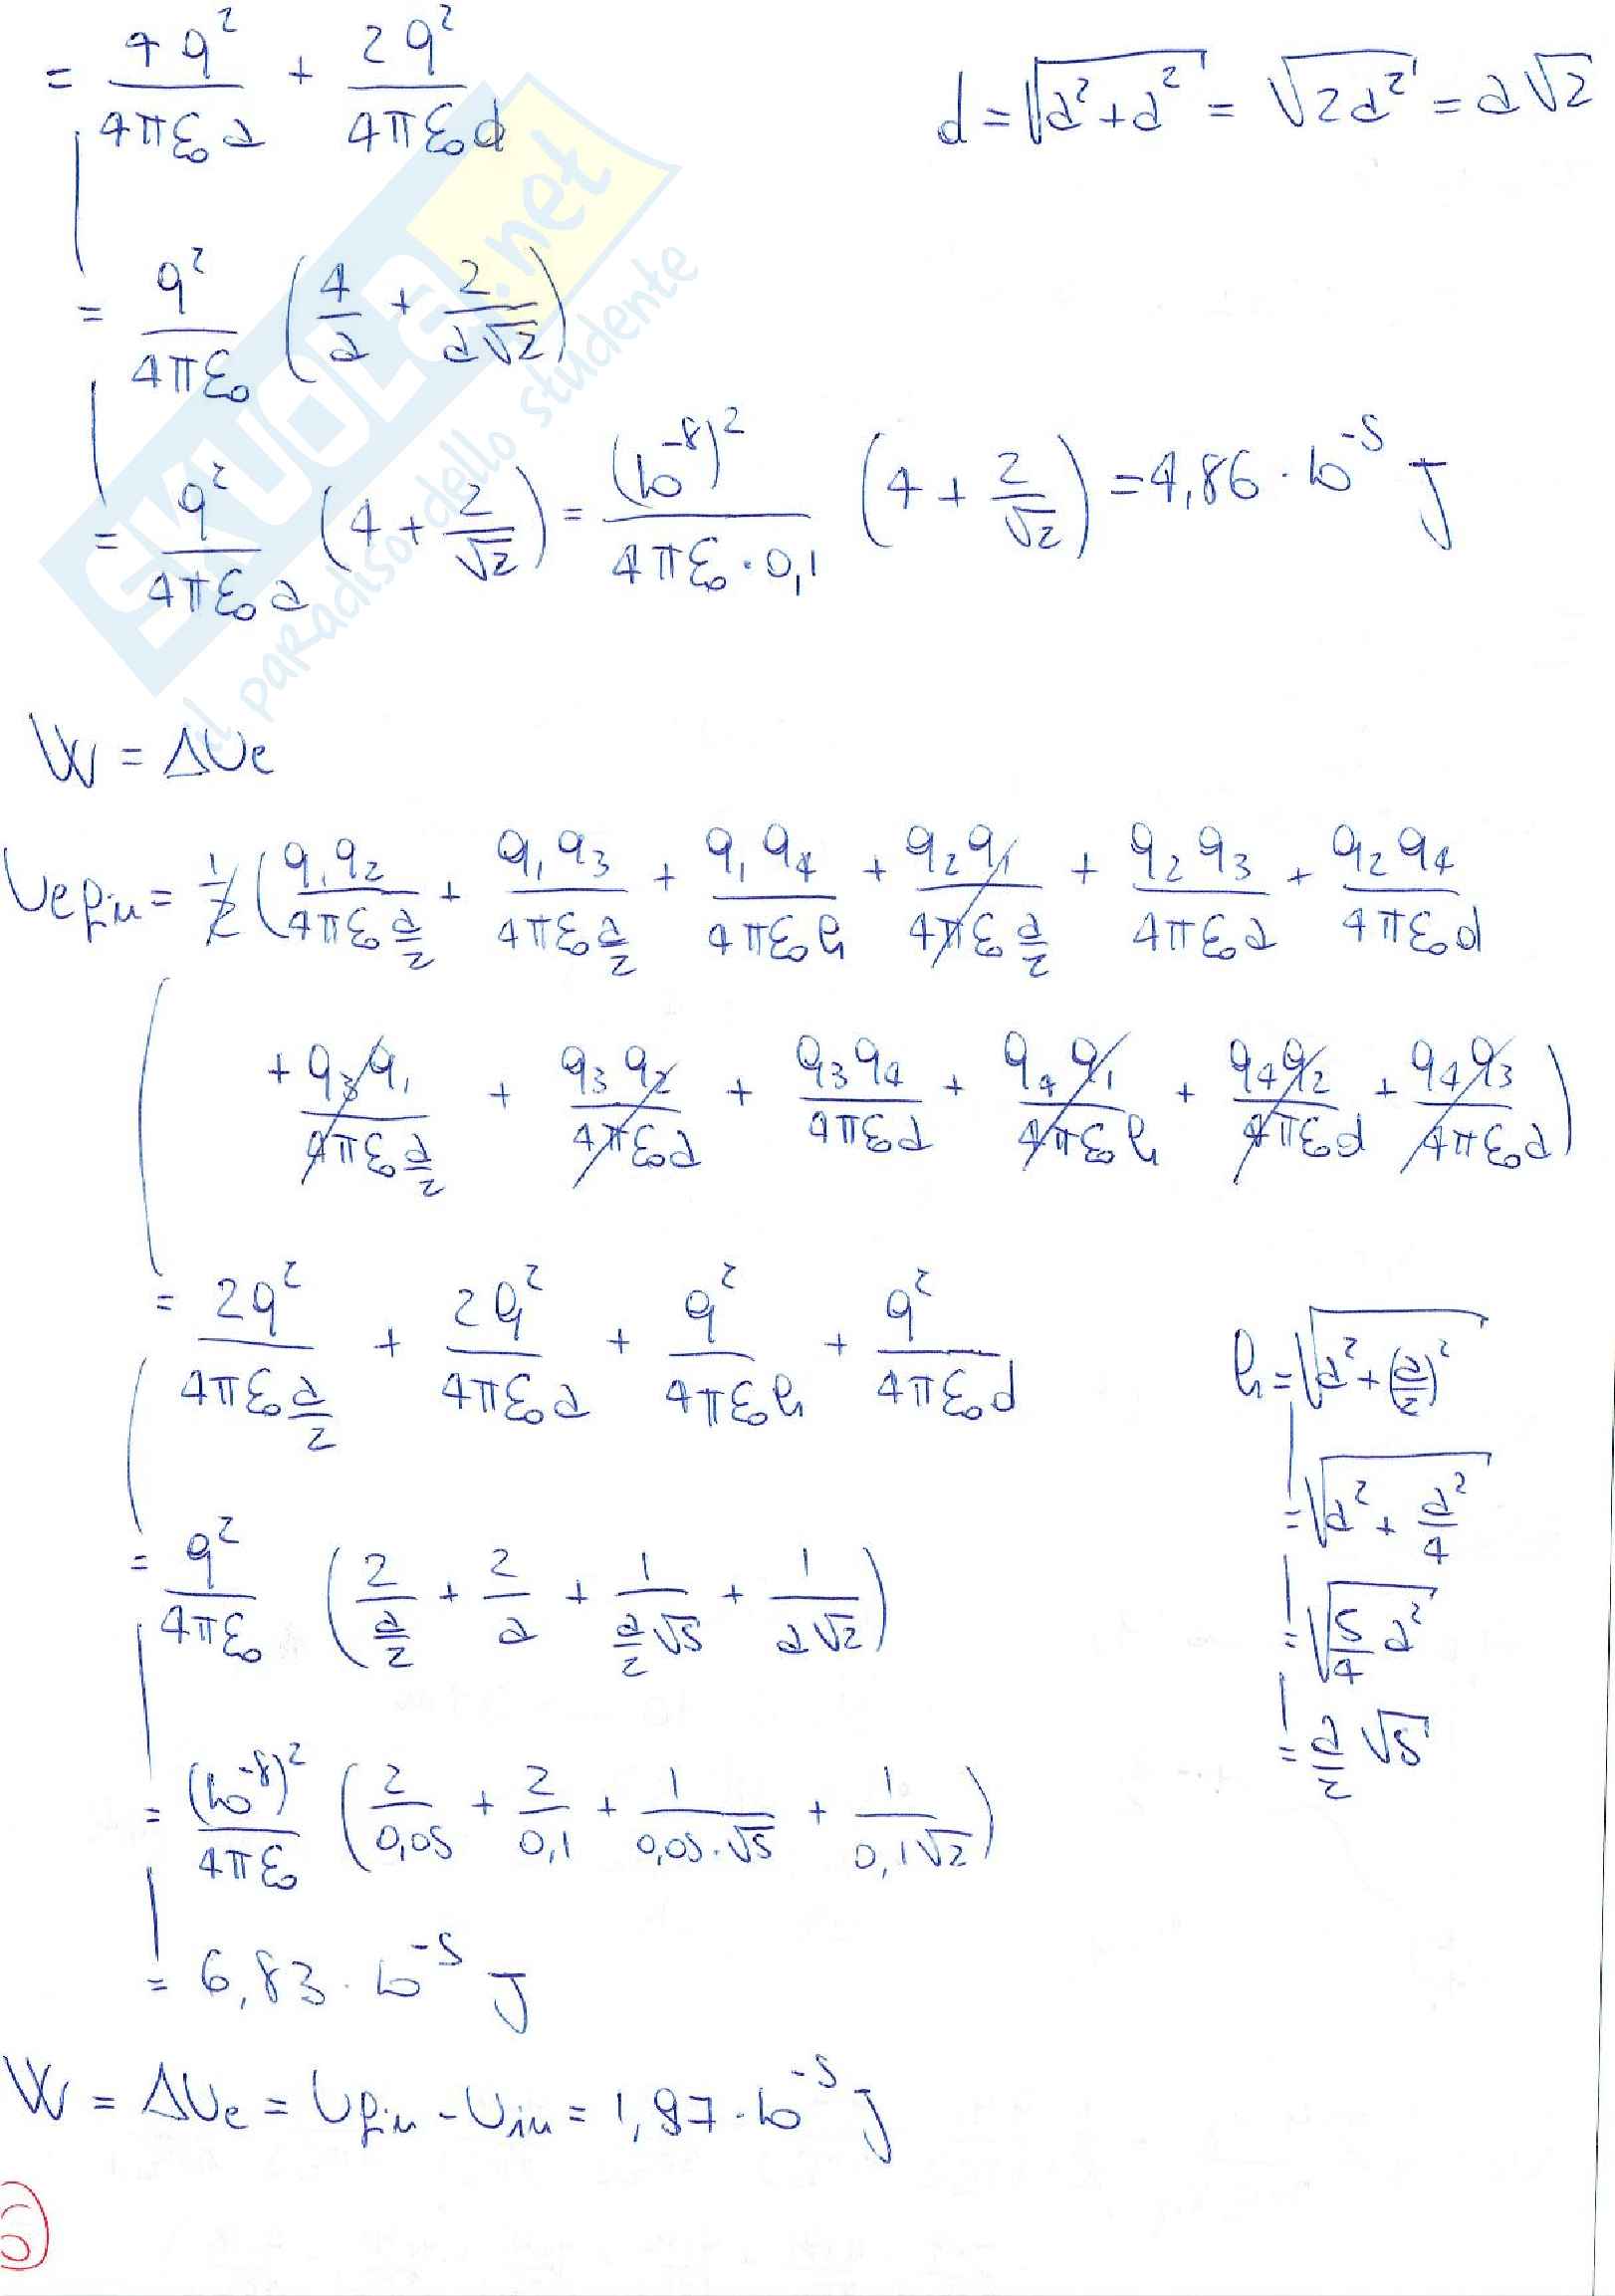 = 4q² / 4πε₀a + 2q² / 4πε₀d    d = √(a² + a²) = √(2a²) = a√2
= q² / 4πε₀ (4/a + 2/(a√2))
= q² / 4πε₀a (4 + 2/√2) = (10⁻⁸)² / 4πε₀·0,1 (4 + 2/√2) = 4,86 · 10⁻⁵ J
SKUOLA.net
il paradiso dello studente
W = ΔUe
Ue fin = 1/2 (q₁q₂ / 4πε₀ a/2 + q₁q₃ / 4πε₀ a/2 + q₁q₄ / 4πε₀h + q₂q₁ / 4πε₀ a/2 + q₂q₃ / 4πε₀a + q₂q₄ / 4πε₀d
+ q₃q₁ / 4πε₀ a/2 + q₃q₂ / 4πε₀a + q₃q₄ / 4πε₀a + q₄q₁ / 4πε₀h + q₄q₂ / 4πε₀d + q₄q₃ / 4πε₀a)
= 2q² / 4πε₀ a/2 + 2q² / 4πε₀a + q² / 4πε₀h + q² / 4πε₀d    h = √(a² + (a/2)²)
= √(a² + a²/4)
= q² / 4πε₀ (2/(a/2) + 2/a + 1/(a/2 √5) + 1/(a√2))    = √(5/4 a²)
= a/2 √5
= (10⁻⁸)² / 4πε₀ (2/0,05 + 2/0,1 + 1/(0,05·√5) + 1/(0,1√2))
= 6,83 · 10⁻⁵ J
W = ΔUe = Ufin - Uin = 1,97 · 10⁻⁵ J